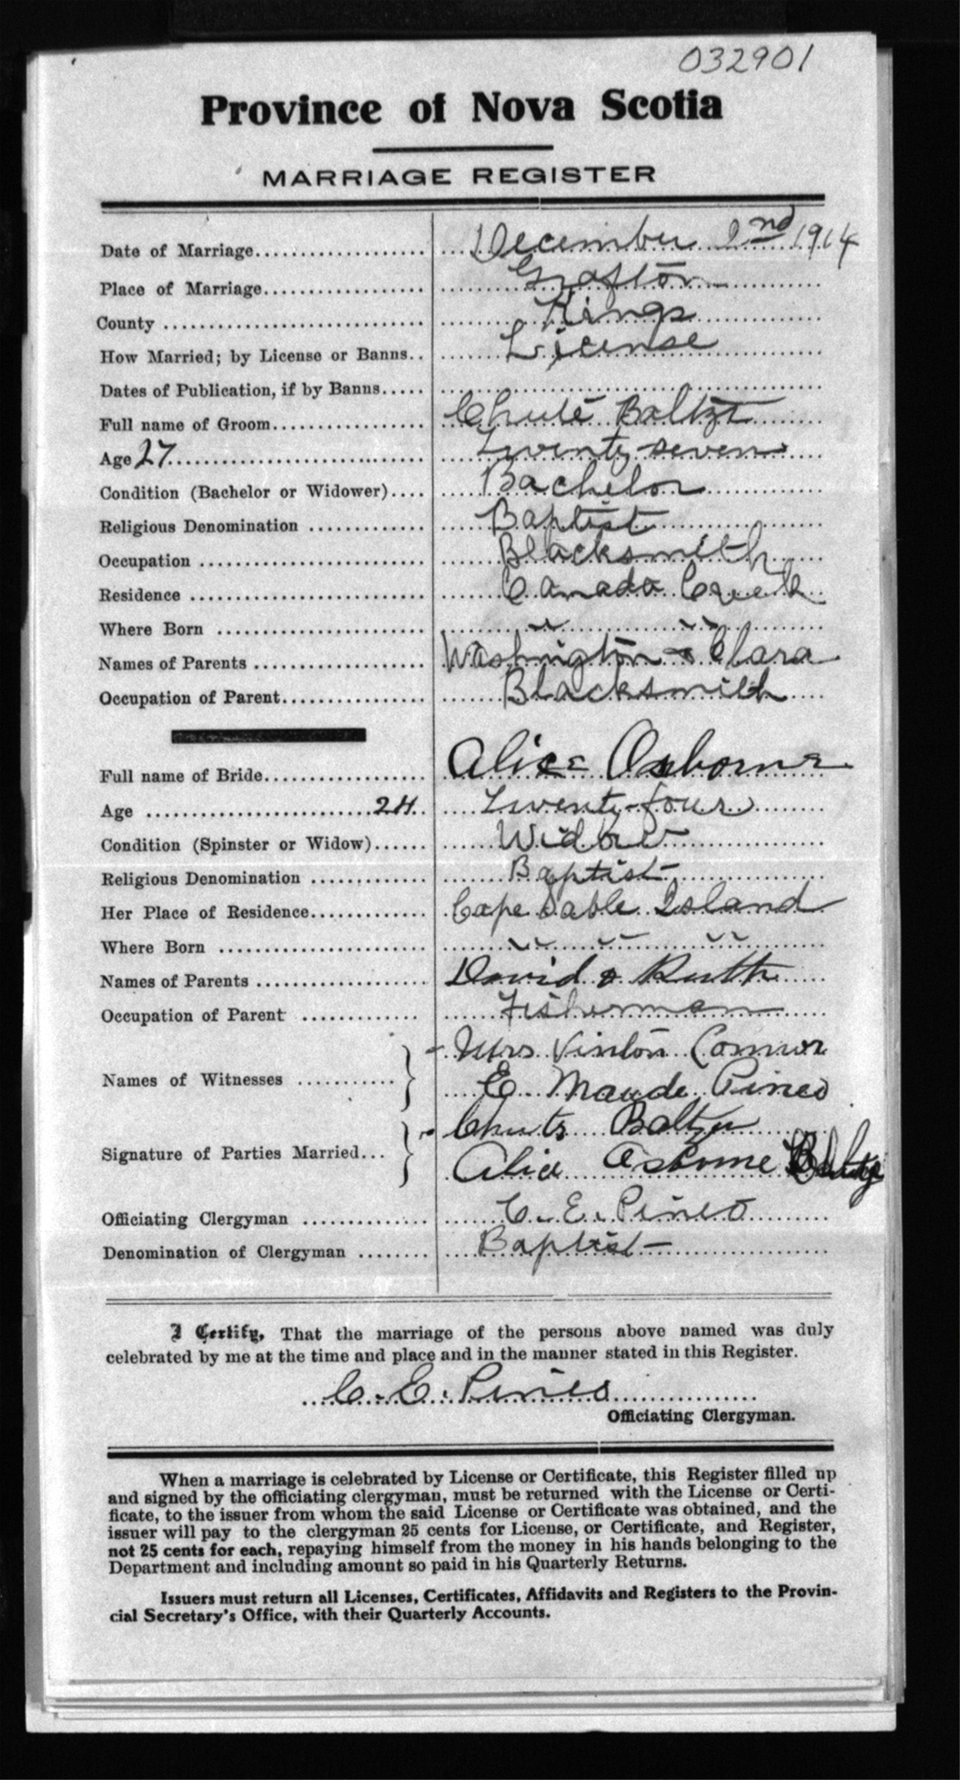 032901
Province of Nova Scotia
MARRIAGE REGISTER
Date of Marriage.................... December 2nd 1914
Place of Marriage................... Grafton
County ............................. Kings
How Married; by License or Banns.. License
Dates of Publication, if by Banns.....
Full name of Groom.................. Chute Baltzt
Age 27.............................. Twenty-seven
Condition (Bachelor or Widower).... Bachelor
Religious Denomination ............. Baptist
Occupation ......................... Blacksmith
Residence .......................... Canada Creek
Where Born ......................... " "
Names of Parents ................... Washington & Clara
Occupation of Parent................ Blacksmith
Full name of Bride.................. Alice Osborne
Age .......................24.. Twenty-four
Condition (Spinster or Widow)...... Widow
Religious Denomination ............. Baptist
Her Place of Residence............. Cape Sable Island
Where Born ......................... " " "
Names of Parents ................... David & Ruth
Occupation of Parent ............. Fisherman
Mrs Vinton Connor
Names of Witnesses ...........
E. Maude Pineo
Chute Baltzer
Signature of Parties Married...
Alice Osborne
Officiating Clergyman ............. C. E. Pineo
Denomination of Clergyman ........ Baptist
I Certify, That the marriage of the persons above named was duly
celebrated by me at the time and place and in the manner stated in this Register.
C. E. Pineo
Officiating Clergyman.
When a marriage is celebrated by License or Certificate, this Register filled up
and signed by the officiating clergyman, must be returned with the License or Certi-
ficate, to the issuer from whom the said License or Certificate was obtained, and the
issuer will pay to the clergyman 25 cents for License, or Certificate, and Register,
not 25 cents for each, repaying himself from the money in his hands belonging to the
Department and including amount so paid in his Quarterly Returns.
Issuers must return all Licenses, Certificates, Affidavits and Registers to the Provin-
cial Secretary's Office, with their Quarterly Accounts.